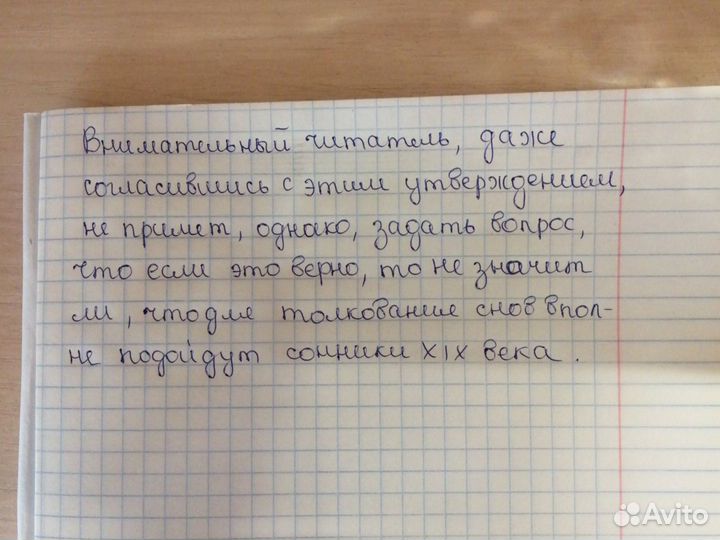 Внимательный читатель, даже
согласившись с этим утверждением,
не примет, однако, задать вопрос,
что если это верно, то не значит
ли, что для толкование снов впол-
не подойдут сонники XIX века.
Avito